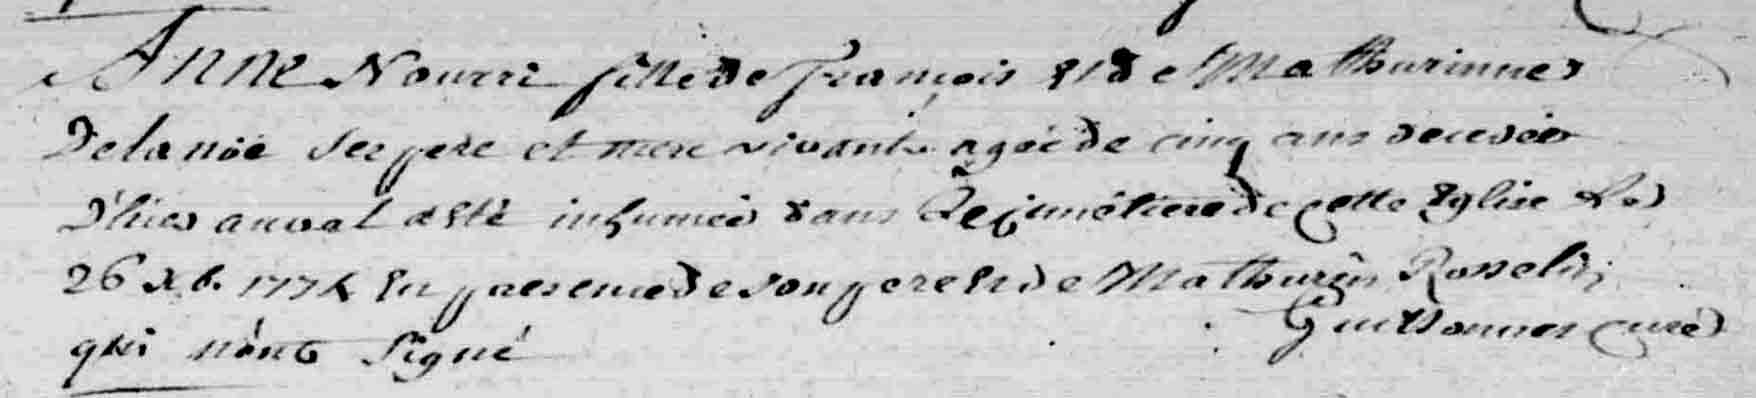 Anne Nourri fille de François et de Mathurinne
Delanöe ses pere et mere vivants agée de cinq ans decedée
d'hier au soir a eté inhumée dans le cimétiere de cette Eglise le
26 xb. 1774 en presence de son pere et de Mathurin Rosselin
qui n'ont signé
Guillonner curé